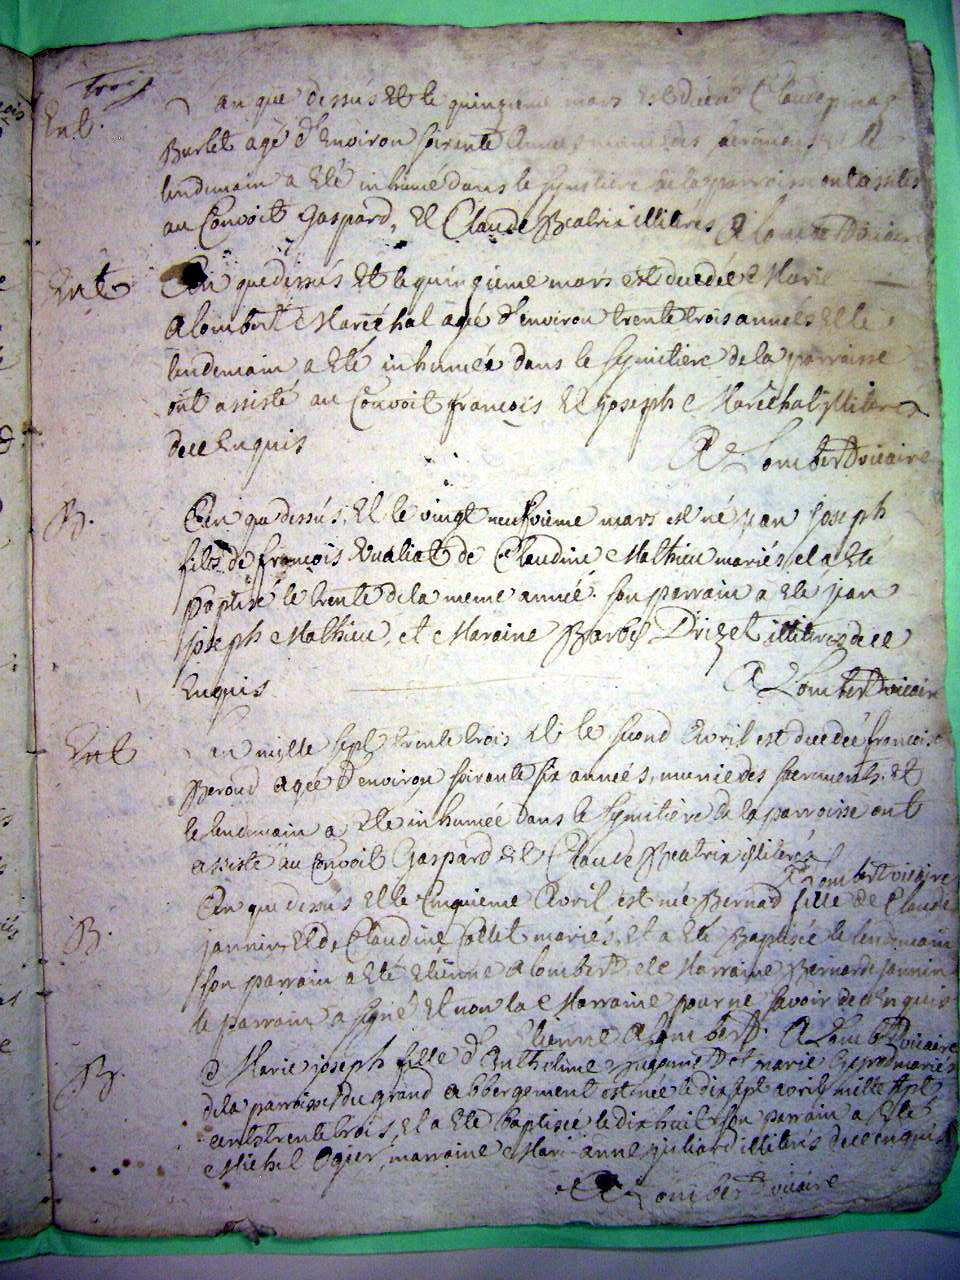 trois
Ent.
an que dessus Et le quinzieme mars est
Burlet agé d'Environ soixante Années munis des sacremens et le
lendemain a Eté inhumé dans le symitiere de la parroisse ont assistés
au Convoit Gaspard, Et Claude Beatrix illiterés A lombert Vicaire
Ent
L'an que dessus Et le quinzieme mars est decedéé Marie
Alombert Maréchal agéé d'environ trente trois annéés Et le
lendemain a Eté inhuméé dans le symitiere de la parroisse
ont assisté au Convoit françois Et joseph Maréchal jlliterés
de ce Enquis
A Lombert vicaire
B.
L'an que dessus, Et le vingt neufvieme mars est né jean joseph
fils de françois Evaliat de Claudine Mathieu mariés, et a Eté
Baptisé le trente de la meme année. son parrain a Eté jean
joseph Mathieu, et Maraine Barbe Drizet illiterés de ce
Enquis
A Lombert vicaire
Ent
an mille sept trente trois Et le second Avril est decedéé francoise
Beroud agéé d'environ soixante six annéés, munie des sacrements, et
le lendemain a Eté inhuméé dans le Symitiere de la parroisse ont
assisté au Convoit Gaspard Et Claude Beatrix jlliterés
A Lombert vicaire
B.
L'an que dessus Et le Cinquieme Avril est né Bernad fille de Claude
jannin Et de Claudine Collet mariés, Et a Eté Baptiséé le lendemain
son parrain a Eté Etienne Alombert et Marraine Bernarde jannin
le parrain a signé Et non la Marraine pour ne savoir de ce Enquis
Etienne Alombert. A Lombert vicaire
B.
Marie joseph fille d'Anthelme Et marie mariés
de la parroisse du grand abbergement est néé le dix sept avril mille sept
cents trente trois, Et a Eté Baptiséé le dix huit son parrain a Eté
Michel Ogier, marraine Marie anne juliard illiterés de ce enquis
A Lombert vicaire